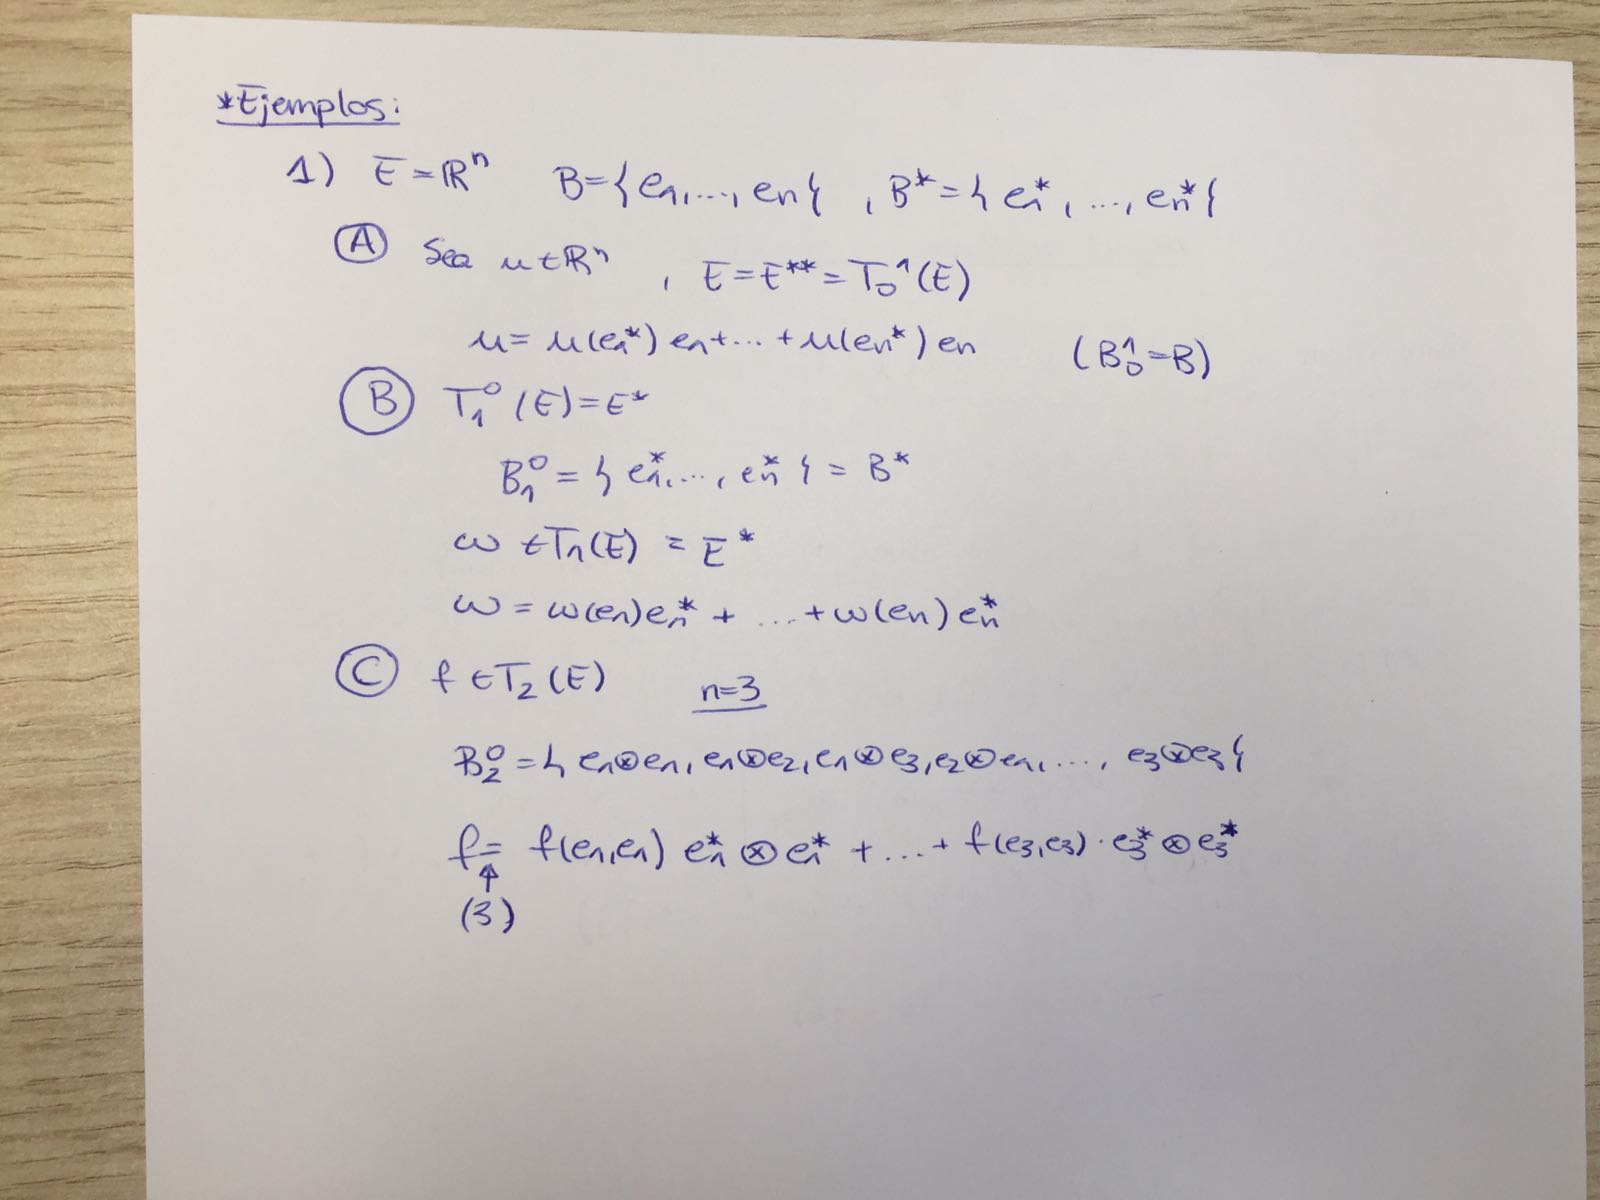 *Ejemplos:
1) E=ℝⁿ B={e₁,...,eₙ}, B*={e₁*,...,eₙ*}
Ⓐ Sea u∈ℝⁿ, E=E**=T₀¹(E)
u=u(e₁*)e₁+...+u(eₙ*)eₙ (B₀¹=B)
Ⓑ T₁⁰(E)=E*
B₁⁰={e₁*,...,eₙ*}=B*
ω∈T₁(E)=E*
ω=ω(e₁)e₁*+...+ω(eₙ)eₙ*
Ⓒ f∈T₂(E) n=3
B₂⁰={e₁⊗e₁,e₁⊗e₂,e₁⊗e₃,e₂⊗e₁,...,e₃⊗e₃}
f= f(e₁,e₁) e₁*⊗e₁*+...+f(e₃,e₃)·e₃*⊗e₃*
↑
(3)